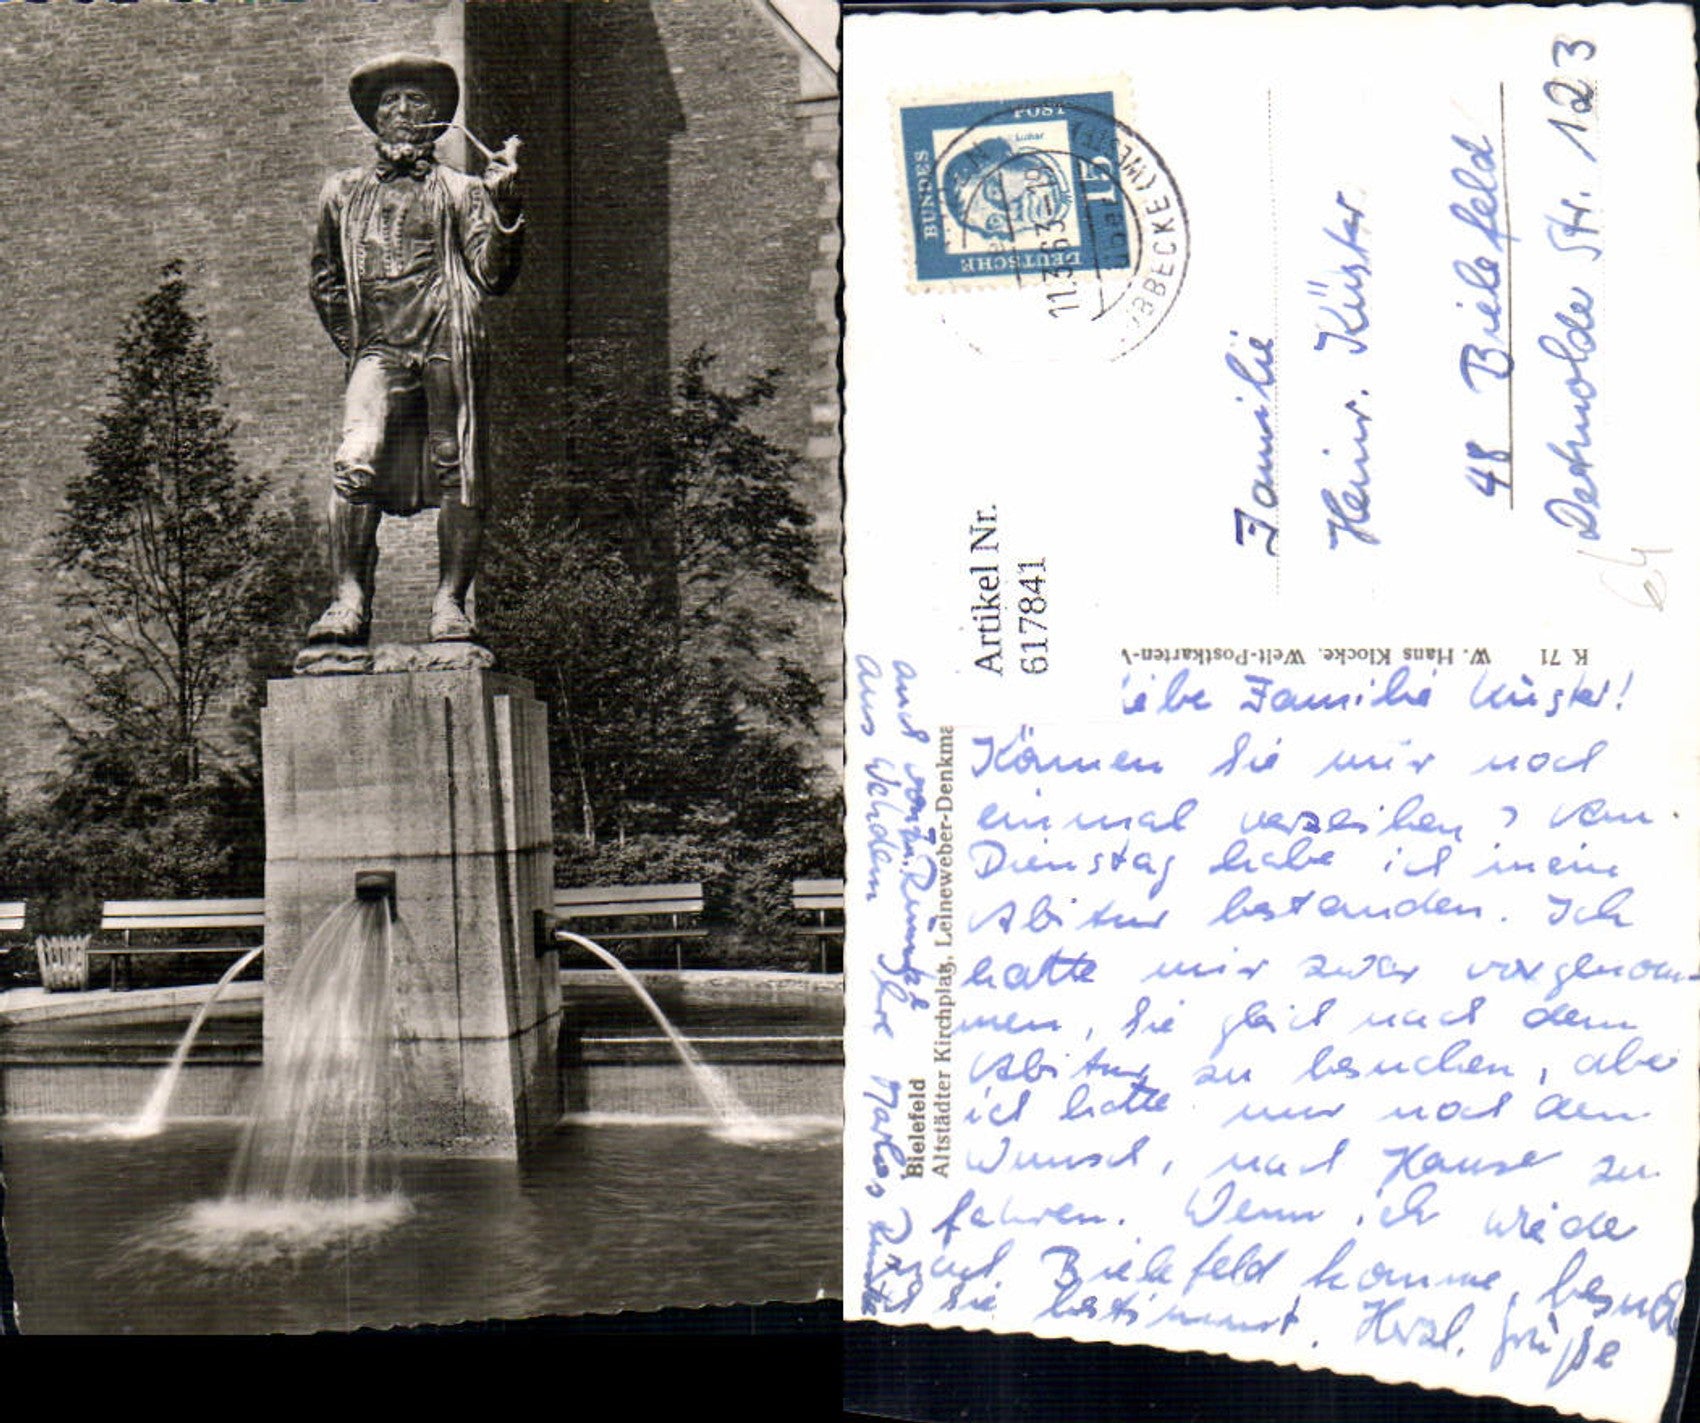 DEUTSCHE
BUNDES
POST
15
Luther
LÜBBECKE (WESTF)
11.3.63-19
Familie
Heinr. Küster
48 Bielefeld
Detmolder Str. 123
64
Artikel Nr.
617841
K 71 W. Hans Klocke, Welt-Postkarten-V
Bielefeld
Altstädter Kirchplatz, Leineweber-Denkma
iebe Familie Küster!
Können Sie mir noch
einmal verzeihen? Am
Dienstag habe ich mein
Abitur bestanden. Ich
hatte mir zwar vorgenom-
men, Sie gleich nach dem
Abitur zu besuchen, aber
ich hatte nur noch den
Wunsch, nach Hause zu
fahren. Wenn ich wieder
nach Bielefeld komme, besuche
ich Sie bestimmt. Herzl. Grüße
aus Wehdem Ihre
auch von